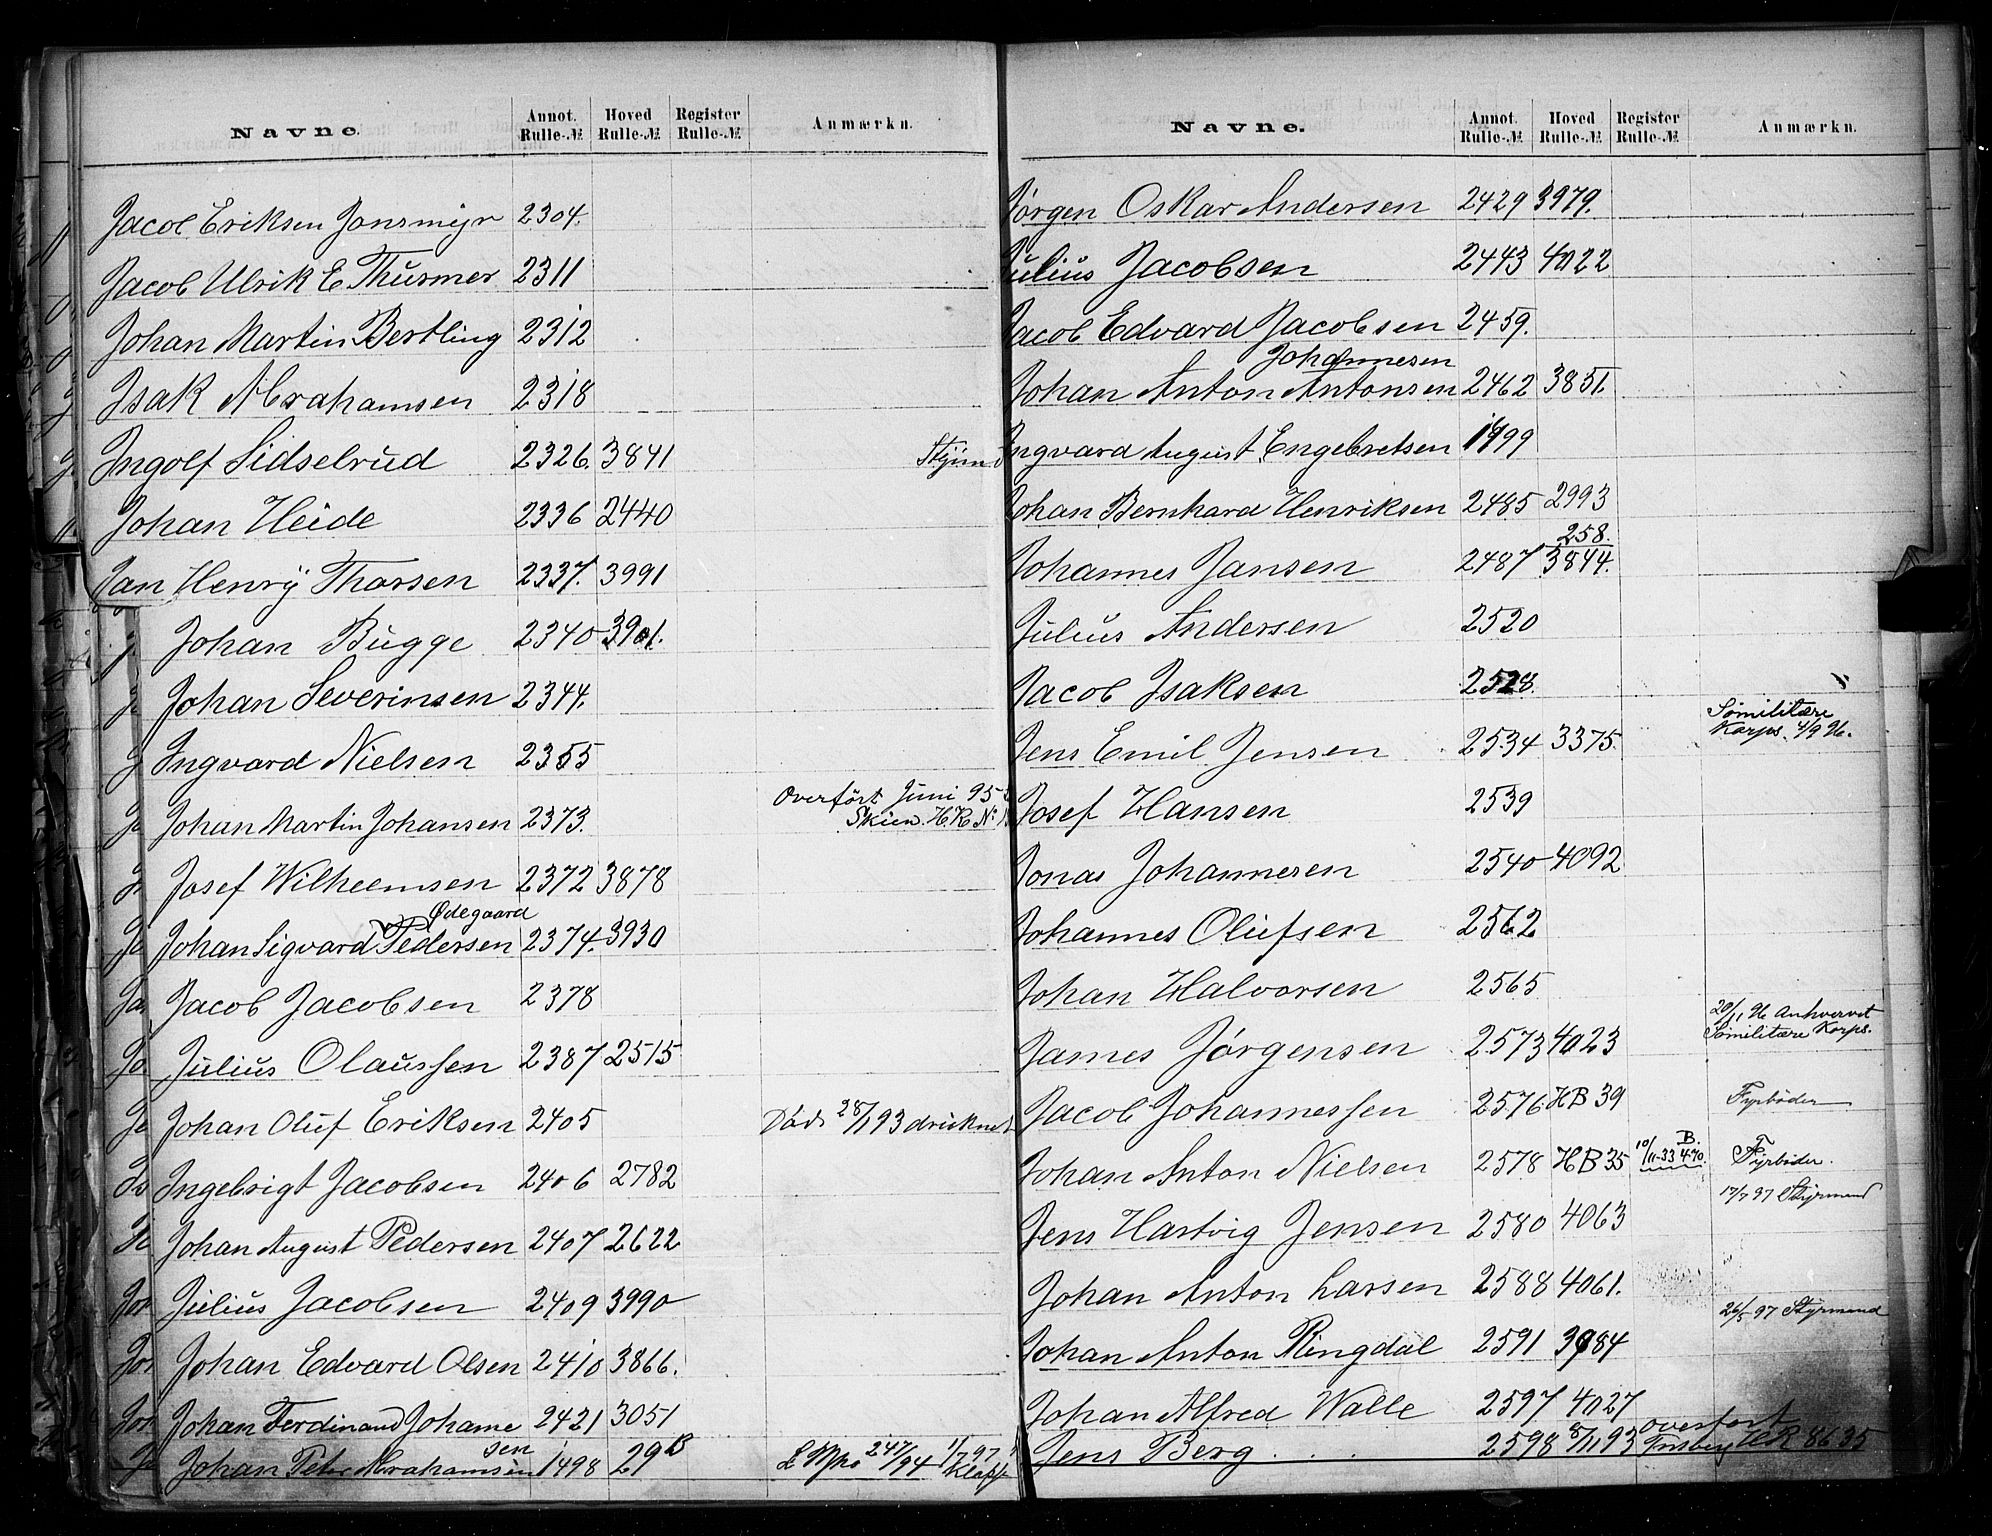 Navne. Annot. Rulle-№ Hoved Rulle-№ Register Rulle-№ Anmærkn.
Jacob Eriksen Jonsmyr 2304.
Jacob Ulrik E Thurmer 2311
Johan Martin Bertling 2312
Isak Abrahamsen 2318
Ingolf Sidselrud 2326. 3841
Johan Heide 2336 2440
Jan Henry Thorsen 2337. 3991
Johan Bugge 2340 3901.
Johan Severinsen 2344.
Ingvard Nielsen 2355
Overført Juni 95
Johan Martin Johansen 2373. Skien. H.R. No.
Josef Wilhelmsen 2372 3878
Ødegaard
Johan Sigvard Pedersen 2374. 3930
Jacob Jacobsen 2378
Julius Olaussen 2387 2515
Johan Oluf Eriksen 2405 Død 28/1 93 druknet
Ingebrigt Jacobsen 2406 2782
Johan August Pedersen 2407 2622
Julius Jacobsen 2409 3990
Johan Edvard Olsen 2410 3866.
Johan Ferdinand Johanne 2421 3051
sen
Johan Peter Abrahamsen 1498 29 B
Navne. Annot. Rulle-№ Hoved Rulle-№ Register Rulle-№ Anmærkn.
Jørgen Oskar Andersen 2429 3979.
Julius Jacobsen 2443 4022
Jacob Edvard Jacobsen 2459.
Johannesen
Johan Anton Antonsen 2462 3851.
Ingvard August Engebretsen 1499
Johan Bernhard Henriksen 2485 2993
258.
Johannes Jansen 2487 3844.
Julius Andersen 2520
Jacob Isaksen 2528.
Sømilitære
Korps. 4/9 96.
Jens Emil Jensen 2534 3375.
Josef Hansen 2539
Jonas Johannesen 2540 4092
Johannes Olufsen 2562
Johan Halvorsen 2565
20/11 96 Anhvervet
Sømilitære Korps.
James Jørgensen 2573 4023
Jacob Johannessen 2576 HB 39 Fyrbøder
Johan Anton Nielsen 2578 HB 35 10/11-33 B. 470. Fyrbøder.
17/7 97 Styrmand
Jens Hartvig Jensen 2580 4063
Johan Anton Larsen 2588 4061.
26/5 97 Styrmand
Johan Anton Ringdal 2591 3984
Johan Alfred Walle 2597 4027
Jens Berg 2598 8/11 93 overført Tønsberg HR 8635